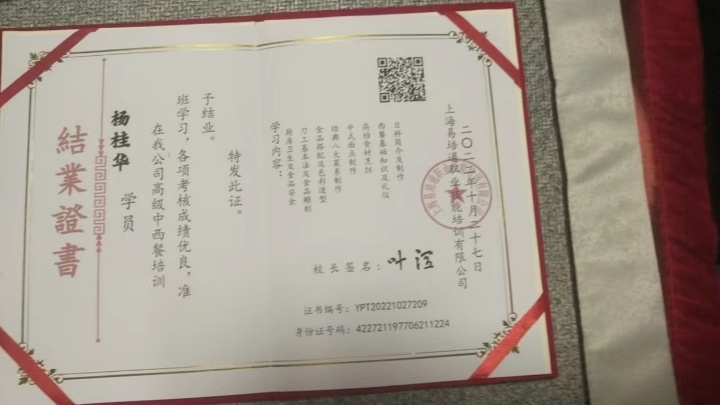 結業證書
杨桂华 学员
在我公司高级中西餐培训
班学习，各项考核成绩优良，准
予结业。
特发此证。
学习内容：
厨房卫生及食品安全
刀工基本法及食品雕刻
食品搭配及色彩造型
经典八大菜系制作
中式面点制作
高档食材烹饪
西餐基础知识及礼仪
日料简介及制作
上海易培道职业技能培训有限公司
二〇二二年十月二十七日
校长签名：叶
证书编号：YPT20221027209
身份证号码：422721197706211224